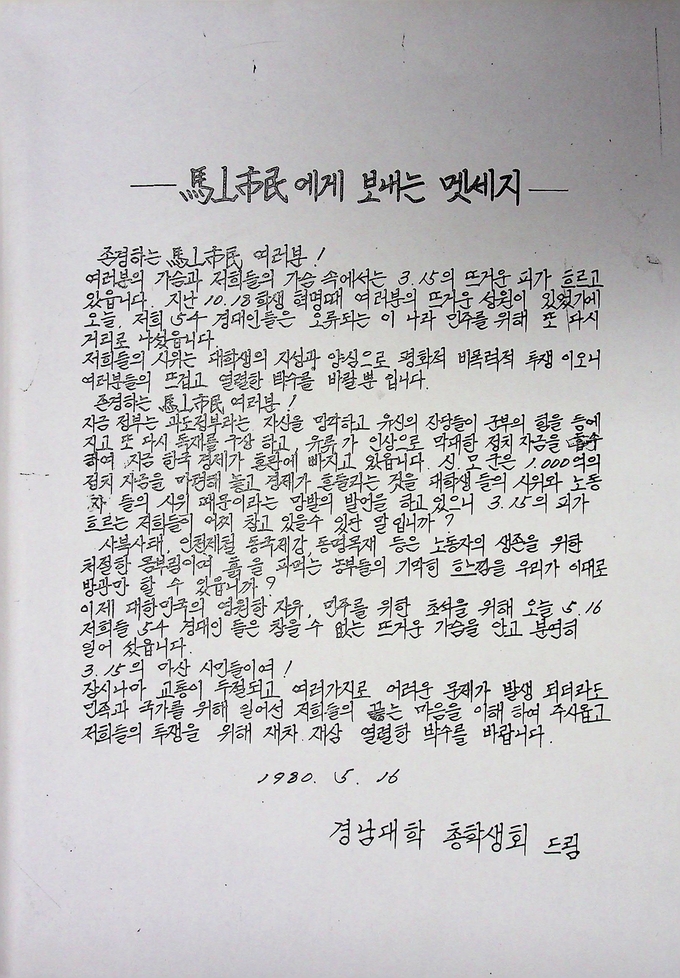 — 馬山市民에게 보내는 멧세지 —
존경하는 馬山市民 여러분!
여러분의 가슴과 저희들의 가슴속에서는 3.15의 뜨거운 피가 흐르고
있읍니다. 지난 10.18학생 혁명때 여러분의 뜨거운 성원이 있었기에
오늘, 저희 54 경대인들은 오류되는 이 나라 민주를 위해 또 다시
거리로 나섰읍니다.
저희들의 시위는 대학생의 지성과 양심으로 평화적 비폭력적 투쟁 이오니
여러분들의 뜨겁고 열렬한 박수를 바랄뿐 입니다.
존경하는 馬山市民 여러분!
지금 정부는 과도정부라는 자신을 망각하고 유신의 잔당들이 군부의 힘을 등에
지고 또 다시 독재를 구상 하고, 유류가 인상으로 막대한 정치 자금을
하여 지금 한국 경제가 혼란에 빠지고 있읍니다. 신 모 군은 1.000억의
정치 자금을 마련해 놓고 경제가 흔들리는 것을 대학생 들의 시위와 노동
자 들의 시위 때문이라는 망발의 발언을 하고 있으니 3.15의 피가
흐르는 저희들이 어찌 참고 있을수 있단 말 입니까?
사북사태, 인천제철 동국제강, 동명목재 등은 노동자의 생존을 위한
처절한 몸부림이며 흙을 파먹는 농부들의 기막힌 한숨을 우리가 이대로
방관만 할 수 있읍니까?
이제 대한민국의 영원한 자유, 민주를 위한 초석을 위해 오늘 5.16
저희들 54 경대인 들은 참을 수 없는 뜨거운 가슴을 안고 분연히
일어 섰읍니다.
3.15의 마산 시민들이여!
잠시나마 교통이 두절되고 여러가지로 어려운 문제가 발생 되더라도
민족과 국가를 위해 일어선 저희들의 끓는 마음을 이해 하여 주시옵고
저희들의 투쟁을 위해 재차 재삼 열렬한 박수를 바랍니다.
1980. 5. 16
경남대학 총학생회 드림